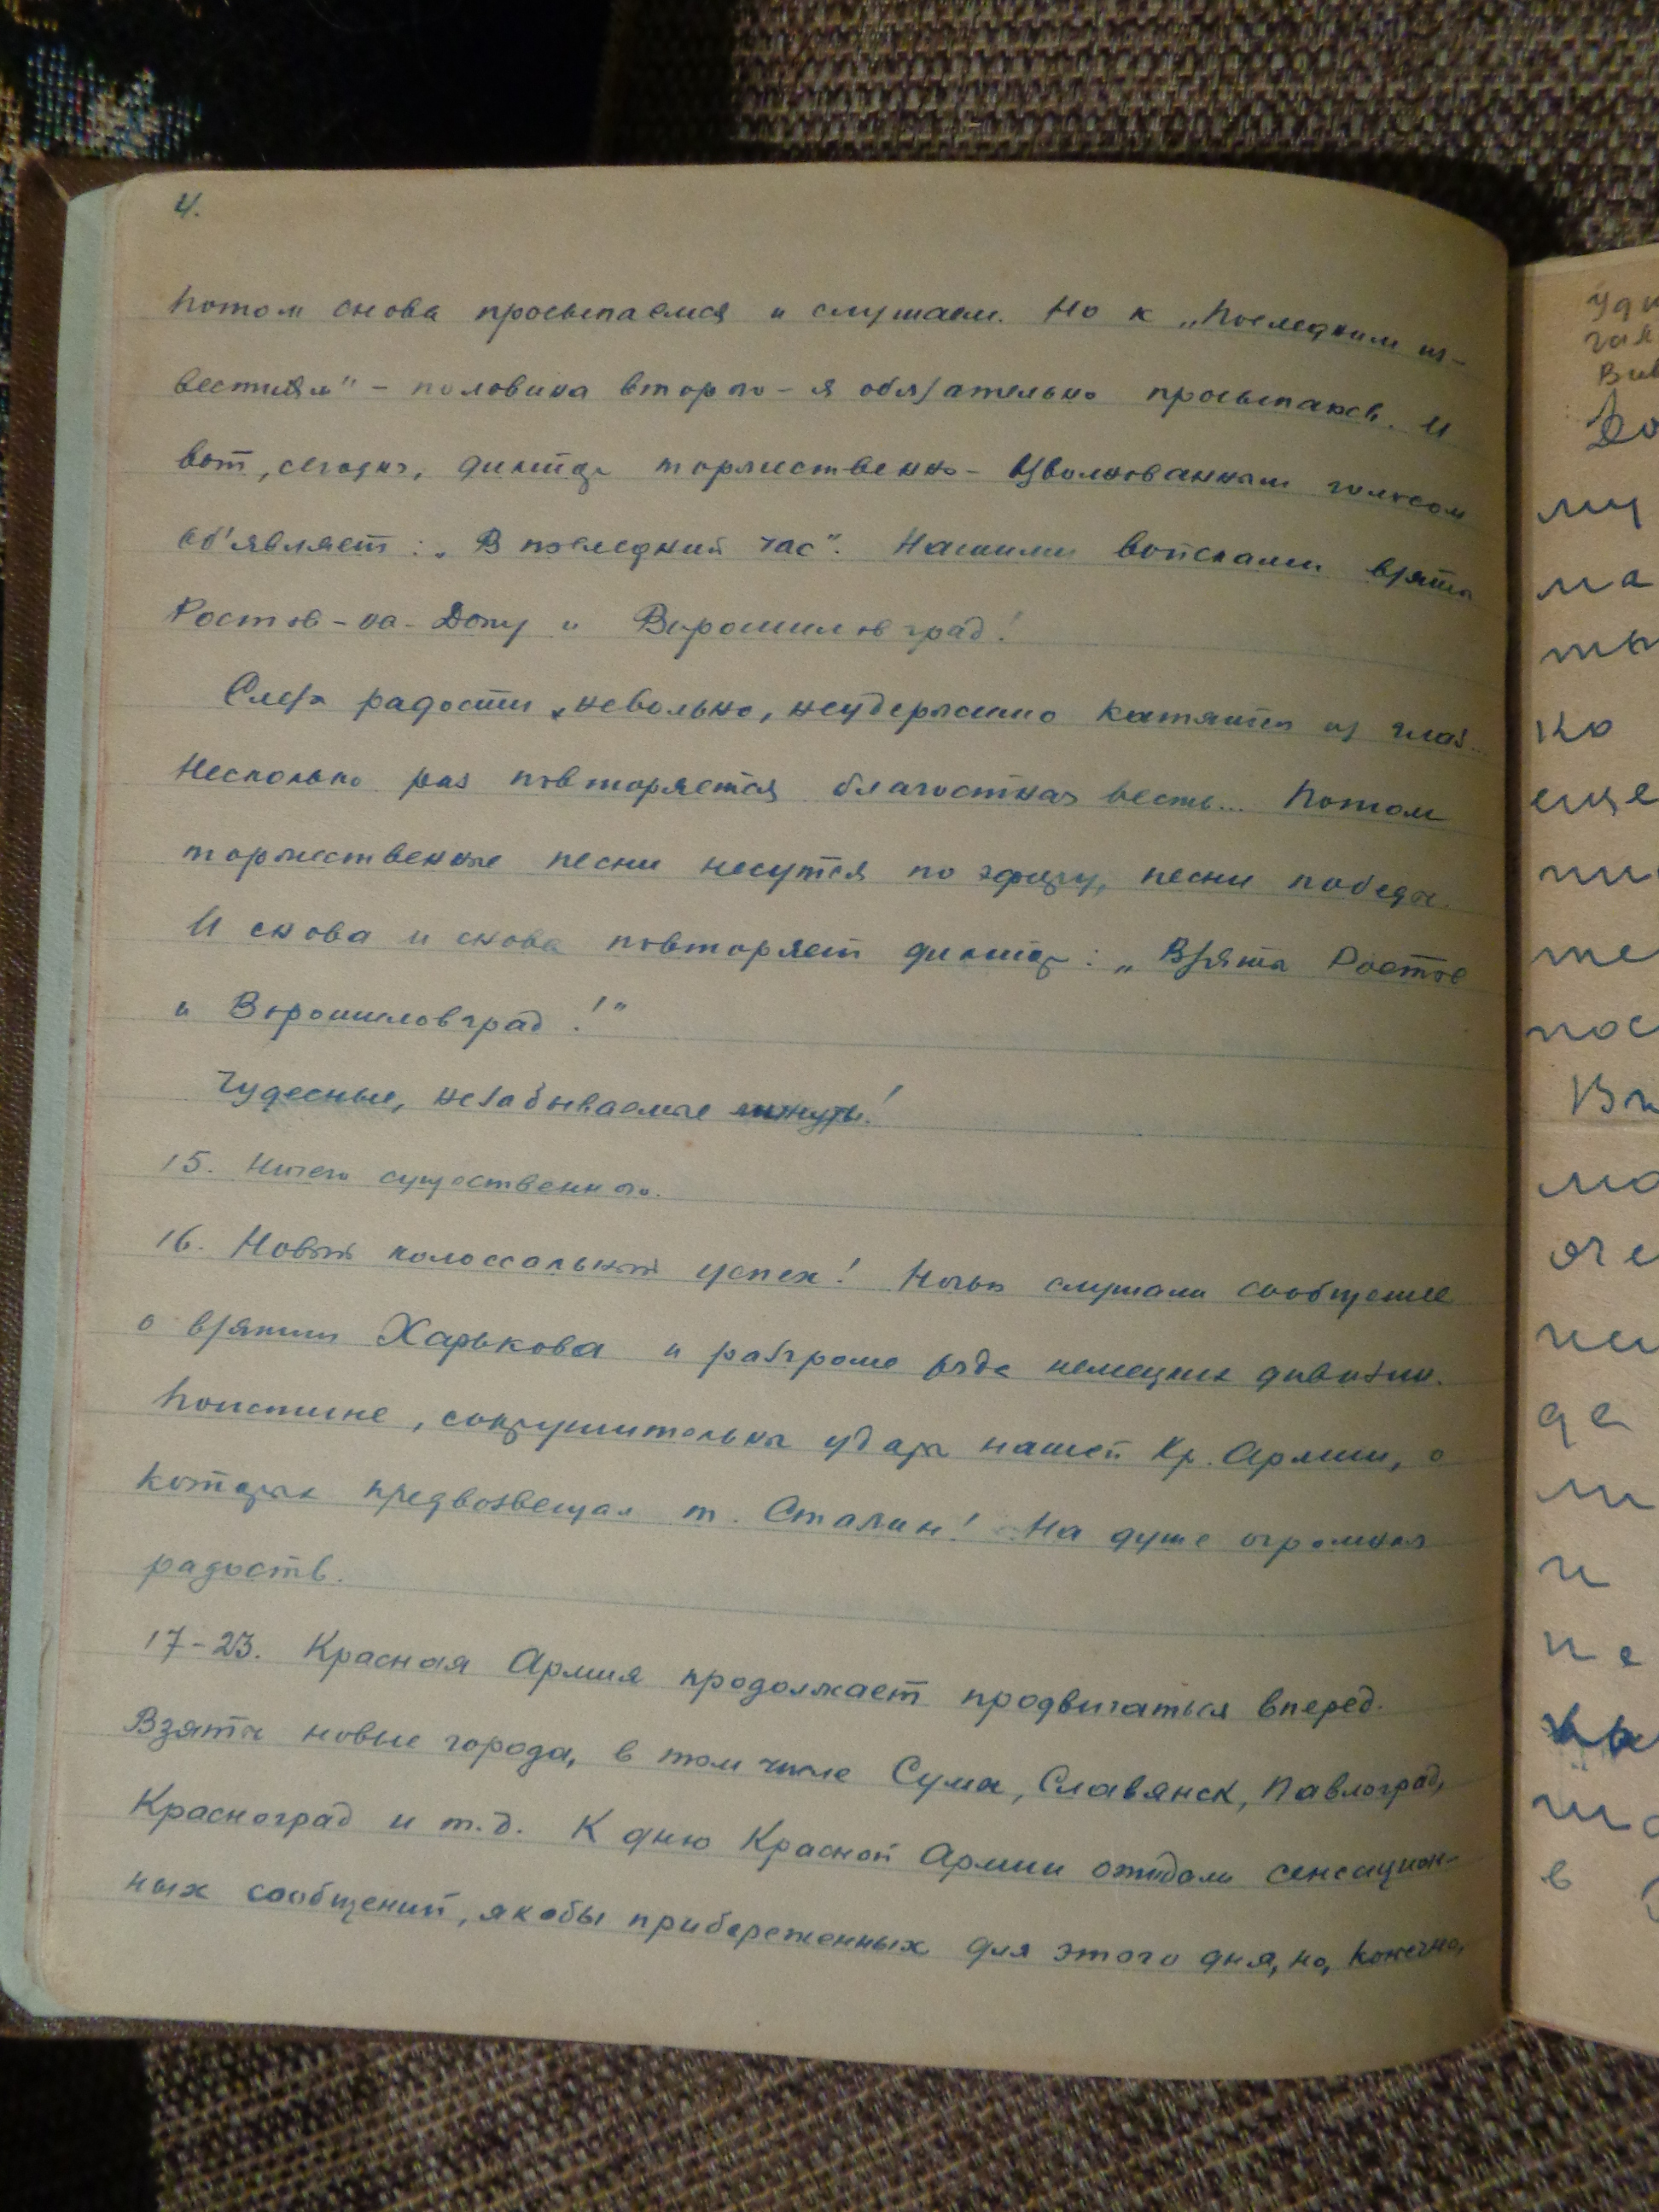 4.
Потом снова просыпаемся и слушаем. Но к „Последним из-
вестиям" – половина второго – я обязательно просыпаюсь. И
вот, сегодня, диктор торжественно-взволнованным голосом
об'являет: „В последний час". Нашими войсками взяты
Ростов-на-Дону и Ворошиловград!
Слезы радости невольно, неудержимо катятся из глаз...
Несколько раз повторяется благостная весть... Потом
торжественные песни несутся по эфиру, песни победы.
И снова и снова повторяет диктор: „Взяты Ростов
и Ворошиловград!"
Чудесные, незабываемые минуты!
15. Ничего существенного.
16. Новый колоссальный успех! Ночью слушали сообщение
о взятии Харькова и разгроме ряда немецких дивизий.
Поистине, сокрушительны удары нашей Кр. Армии, о
которых предвозвещал т. Сталин! На душе огромная
радость.
17-23. Красная Армия продолжает продвигаться вперед.
Взяты новые города, в том числе Сумы, Славянск, Павлоград,
Красноград и т.д. К дню Красной Армии ожидали сенсацион-
ных сообщений, якобы прибереженных для этого дня, но, конечно,